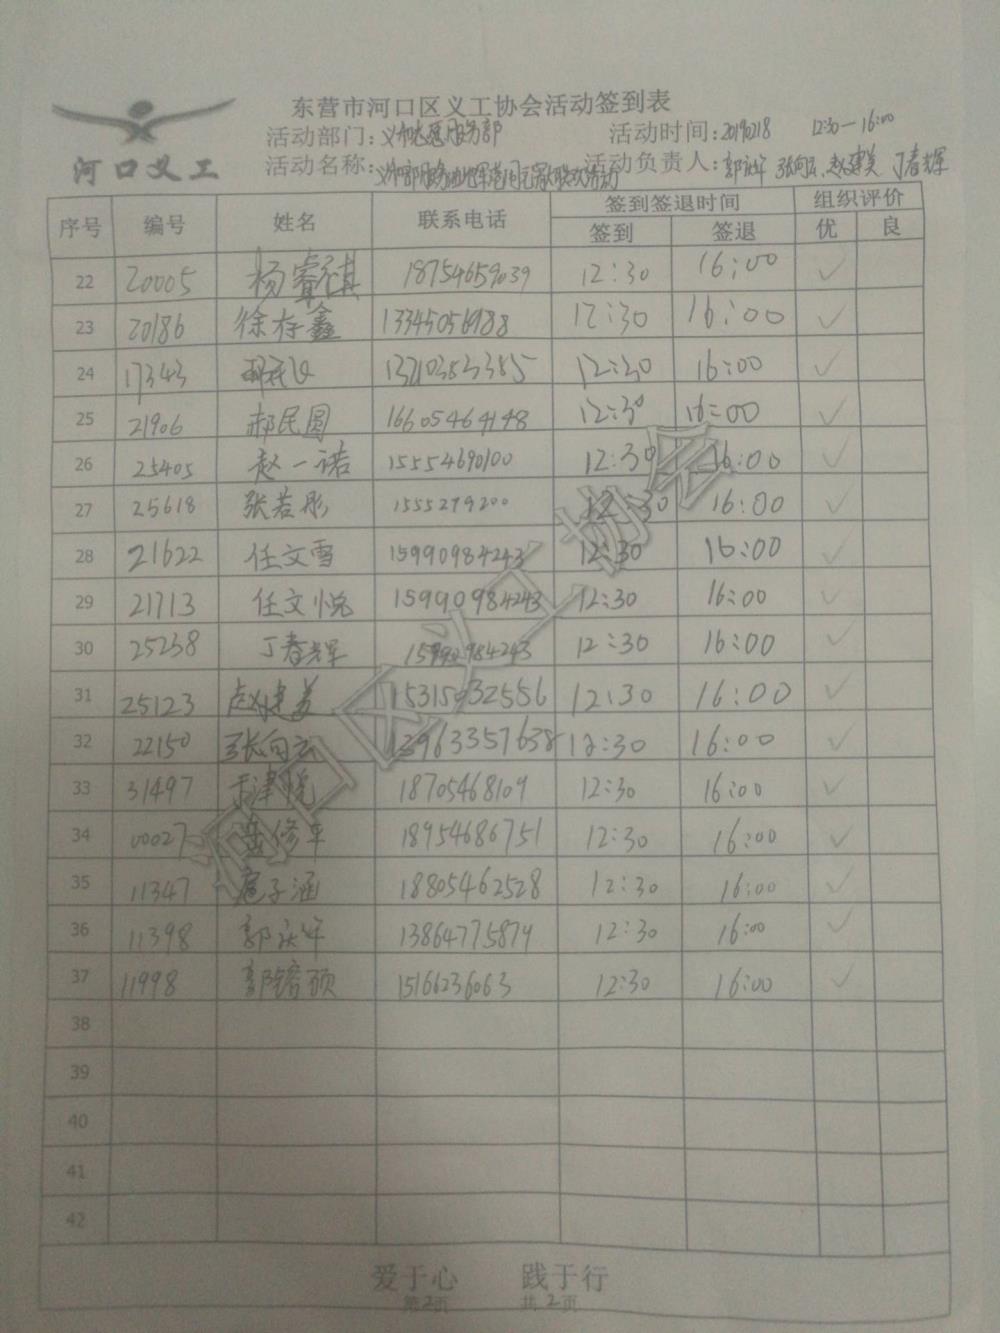 东营市河口区义工协会活动签到表
河口义工
活动部门：义和志愿服务部 活动时间：20190218 12:30—16:00
活动名称： 活动负责人：郭庆华 张向云 赵建美 丁春辉
序号 编号 姓名 联系电话 签到签退时间 组织评价
签到 签退 优 良
22 20005 杨睿祺 18754659039 12:30 16:00 ✓
23 20186 徐存鑫 13345056988 12:30 16:00 ✓
24 17343 12:30 16:00 ✓
25 21906 郝民圆 16605464148 12:30 16:00 ✓
26 25405 赵一诺 15554690100 12:30 16:00 ✓
27 25618 张若彤 1555279200 12:30 16:00 ✓
28 21622 任文雪 15990984243 12:30 16:00 ✓
29 21713 任文悦 15990984243 12:30 16:00 ✓
30 25238 丁春辉 15990984243 12:30 16:00 ✓
31 25123 赵建美 15315032556 12:30 16:00 ✓
32 22150 张向云 13963357638 12:30 16:00 ✓
33 31497 于津悦 18705468109 12:30 16:00 ✓
34 00027 岳修平 18954686751 12:30 16:00 ✓
35 11347 扈子涵 18805462528 12:30 16:00 ✓
36 11398 郭庆华 13864775879 12:30 16:00 ✓
37 11998 郭锴硕 15166236063 12:30 16:00 ✓
38
39
40
41
42
爱于心 践于行
第2页 共2页
河口区义工协会